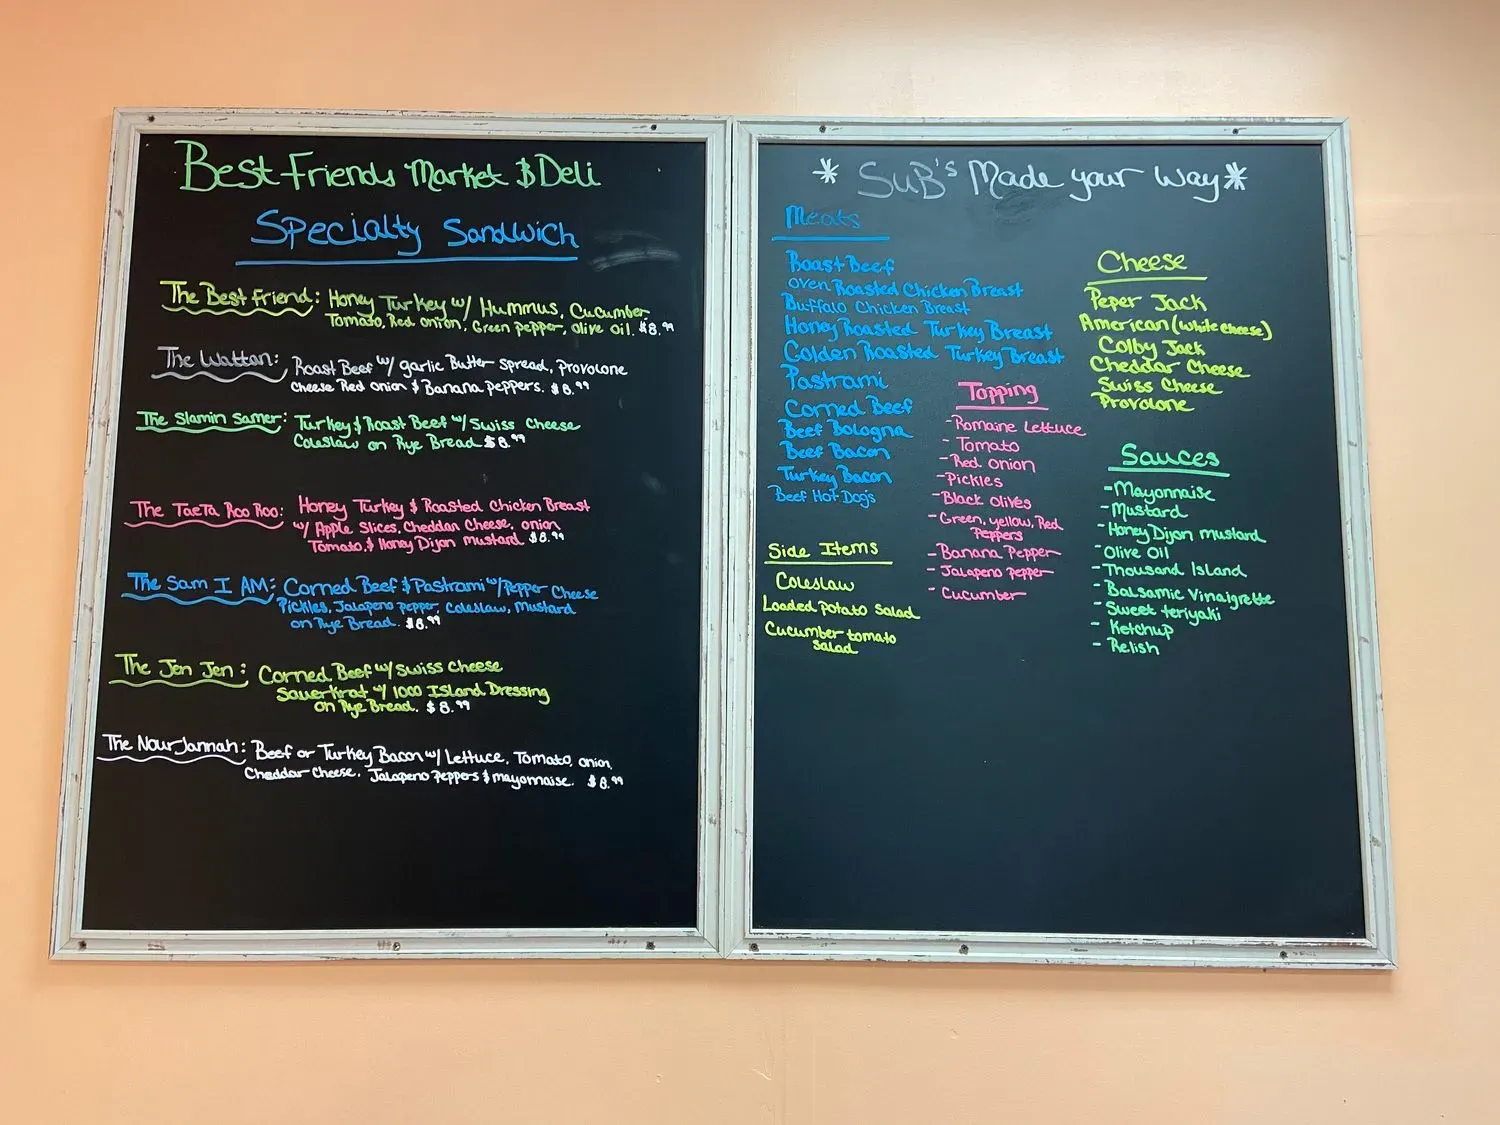 Best Friends Market & Deli
Specialty Sandwich
The Best Friend: Honey Turkey w/ Hummus, Cucumber
Tomato, Red onion, Green pepper, olive oil. $8.99
The Wattan: Roast Beef w/ garlic Butter spread, provolone
cheese Red onion & Banana peppers. $8.99
The Slamin Samer: Turkey & Roast Beef w/ Swiss Cheese
Coleslaw on Rye Bread $8.99
The TaeTa Roo Roo: Honey Turkey & Roasted Chicken Breast
w/ Apple Slices, Cheddan Cheese, onion
Tomato, & Honey Dijon mustard $8.99
The Sam I AM: Corned Beef & Pastrami w/ Pepper Cheese
Pickles, Jalapeno pepper, Coleslaw, Mustard
on Rye Bread. $8.99
The Jen Jen: Corned Beef w/ Swiss Cheese
Sauerkrat w/ 1000 Island Dressing
on Rye Bread. $8.99
The Nour Jannah: Beef or Turkey Bacon w/ Lettuce, Tomato, onion,
Cheddar cheese, Jalapeno Peppers & mayonnaise. $8.99
* SuB's Made your Way *
Meats
Roast Beef
oven Roasted Chicken Breast
Buffalo Chicken Breast
Honey Roasted Turkey Breast
Golden Roasted Turkey Breast
Pastrami
Corned Beef
Beef Bologna
Beef Bacon
Turkey Bacon
Beef Hot Dog's
Side Items
Coleslaw
Loaded potato Salad
Cucumber tomato
Salad
Topping
- Romaine Lettuce
- Tomato
- Red onion
- Pickles
- Black olives
- Green, yellow, Red
Peppers
- Banana Pepper
- Jalapeno pepper
- Cucumber
Cheese
Peper Jack
American (white cheese)
Colby Jack
Cheddar Cheese
Swiss Cheese
Provolone
Sauces
- Mayonnaise
- Mustard
- Honey Dijon mustard
- Olive Oil
- Thousand Island
- Balsamic Vinaigrette
- Sweet teriyaki
- Ketchup
- Relish